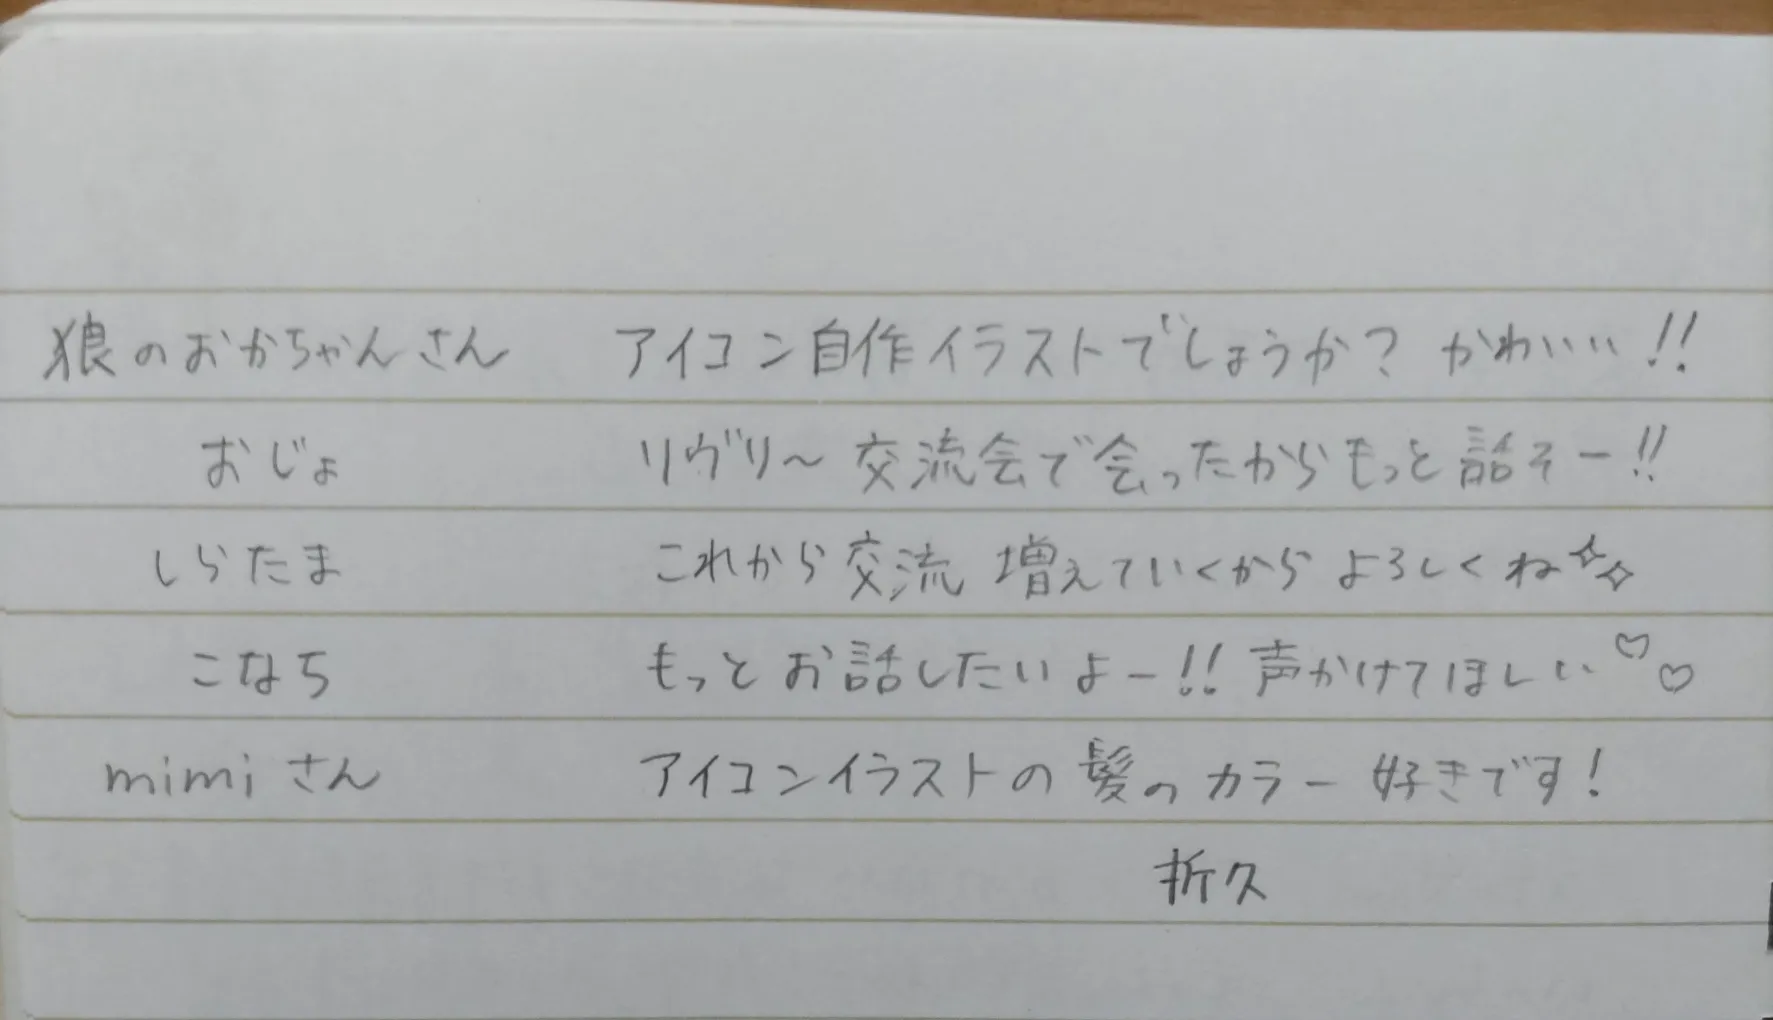 狼のおかちゃんさん アイコン自作イラストでしょうか？ かわいい!!
おじょ リヴリ〜交流会で会ったからもっと話そー!!
しらたま これから交流増えていくからよろしくね✧✧
こなち もっとお話したいよー!! 声かけてほしい♡♡
mimiさん アイコンイラストの髪のカラー好きです!
折久